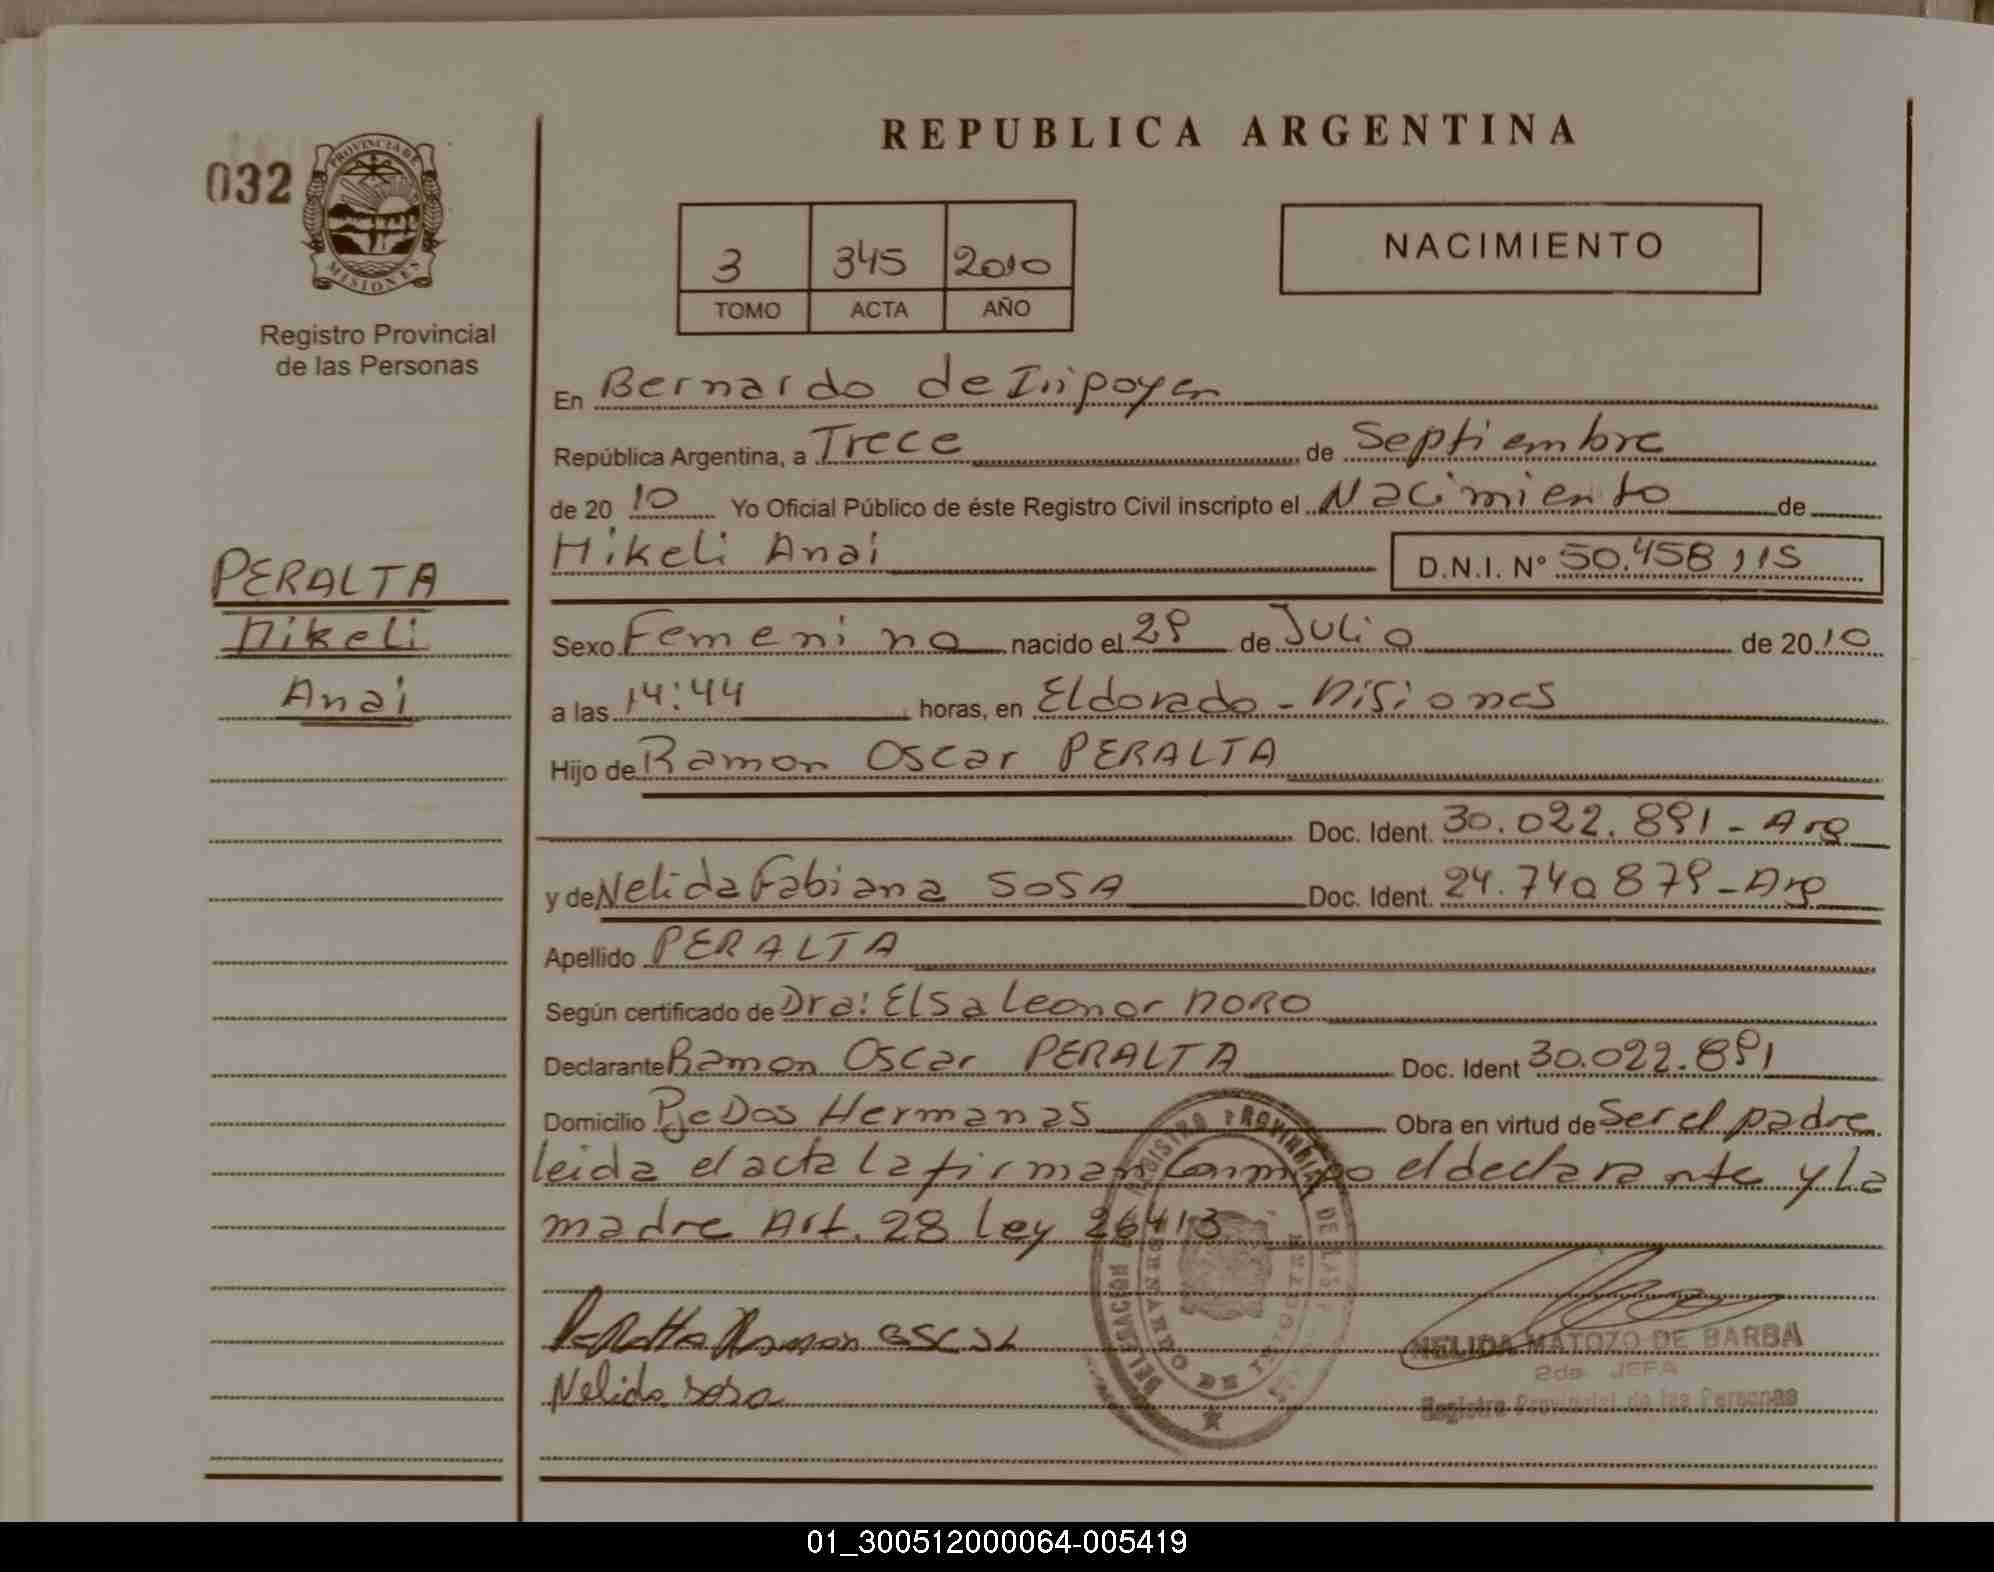 REPUBLICA ARGENTINA
032
PROVINCIA DE
MISIONES
Registro Provincial
de las Personas
3 345 2010
TOMO ACTA AÑO
NACIMIENTO
En Bernardo de Iripoyen
República Argentina, a Trece de Septiembre
de 20 10 Yo Oficial Público de éste Registro Civil inscripto el Nacimiento de
Mikeli Anai D.N.I. N° 50.458115
PERALTA
Mikeli
Anai
Sexo Femenino nacido el 29 de Julio de 20 10
a las 14:44 horas, en Eldorado - Misiones
Hijo de Ramon Oscar PERALTA
Doc. Ident. 30.022.891 - Arg
y de Nelida Fabiana SOSA Doc. Ident. 24.740879 - Arg
Apellido PERALTA
Según certificado de Dra: Elsa Leonor MORO
Declarante Ramon Oscar PERALTA Doc. Ident 30.022.891
Domicilio Pje Dos Hermanas Obra en virtud de Ser el padre
leida el acta la firman conmipo el declarante y La
madre Art. 28 Ley 26413
Peralta Ramon Oscar
Nelida sosa
NELIDA MATOZO DE BARBA
2da. JEFA
Registro Provincial de las Personas
01_300512000064-005419